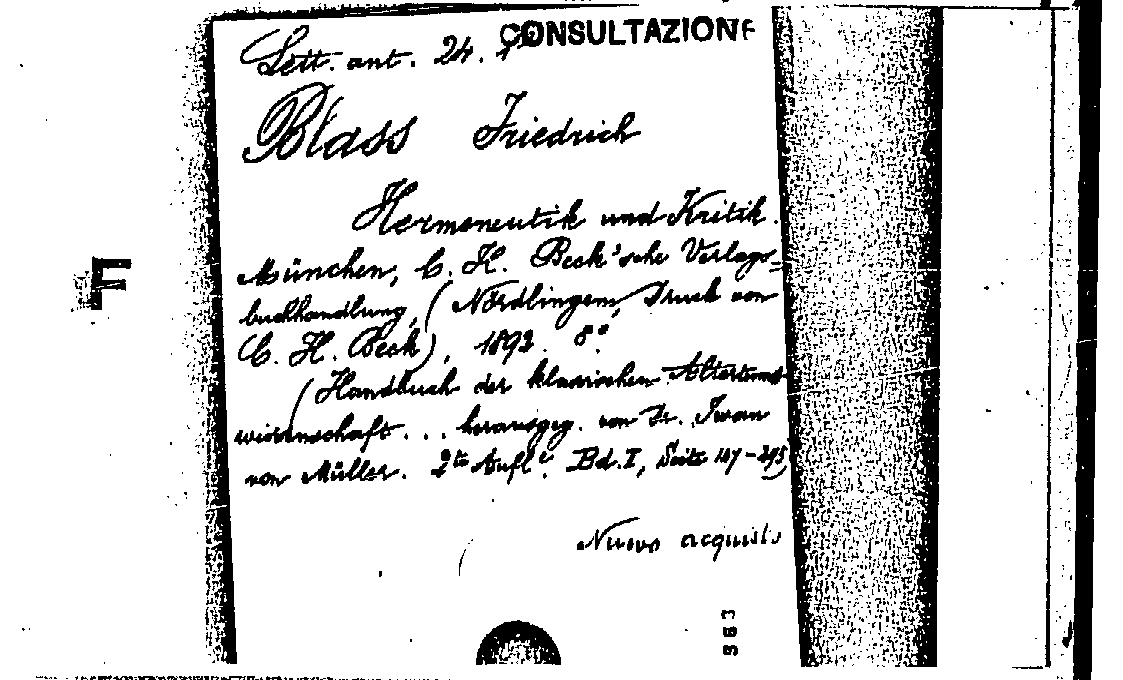 CONSULTAZIONE
Lett. ant. 24.
Blass Friedrich
Hermeneutik und Kritik.
München, C. H. Beck'sche Verlags=
buchhandlung, (Nördlingen, Druck von
C. H. Beck), 1892. 8°.
(Handbuch der klassischen Altertums
wissenschaft... herausgeg. von Dr. Iwan
von Müller. 2te Aufl. Bd. I, Seite 147-295)
Nuovo acquisto
F
563